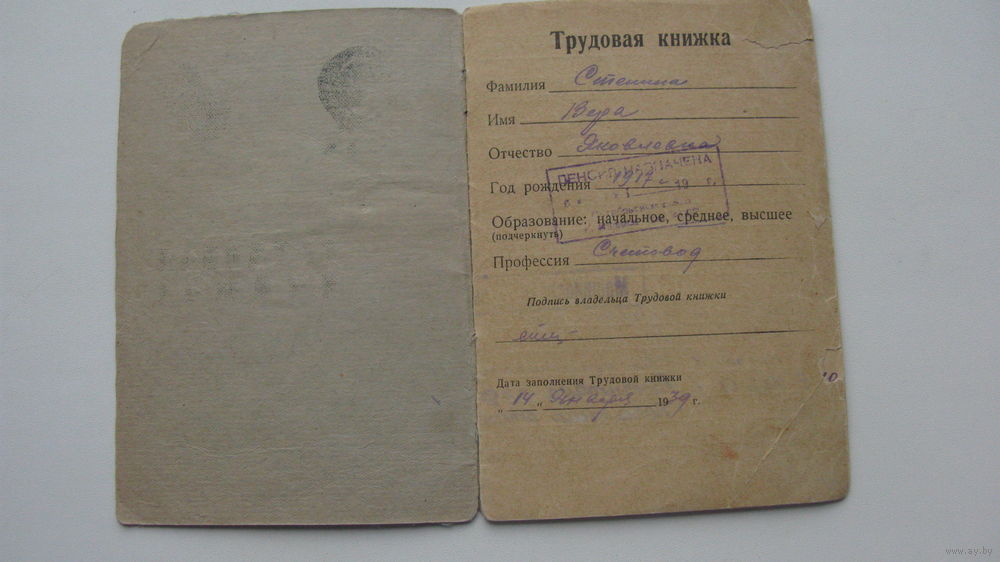 Трудовая книжка
Фамилия Стенина
Имя Вера
Отчество Яковлевна
ПЕНСИЯ НАЗНАЧЕНА
Год рождения 1917
19 г.
Образование: начальное, среднее, высшее
(подчеркнуть)
Профессия Счетовод
Подпись владельца Трудовой книжки
Дата заполнения Трудовой книжки
„14„ января 1939 г.
www.ay.by